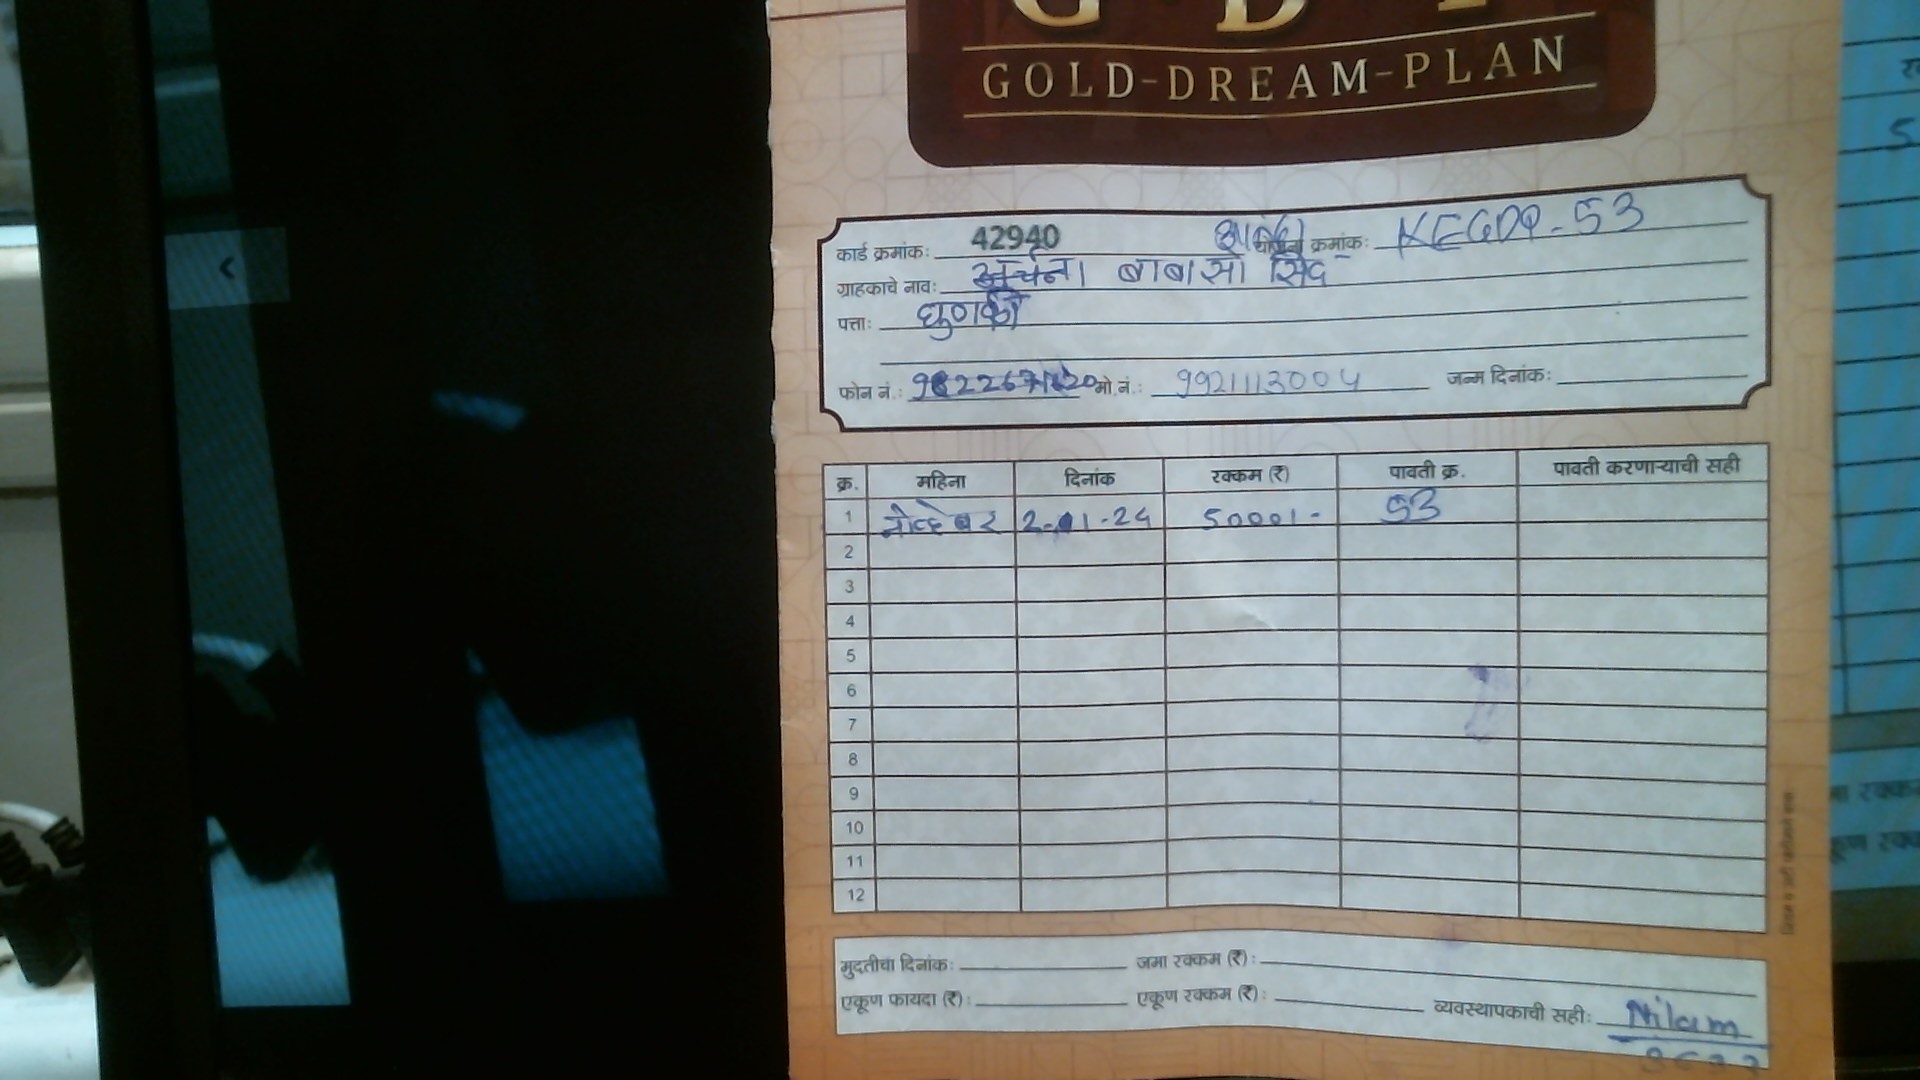 GOLD-DREAM-PLAN
कार्ड क्रमांक: 42940 क्रमांक: KEGDP-53
ग्राहकाचे नाव: अर्चना बाबासो सिद
पत्ता: घुणकी
फोन नं.: मो.नं.: 9921113004 जन्म दिनांक:
क्र. महिना दिनांक रक्कम (₹) पावती क्र. पावती करणाऱ्याची सही
1 नोव्हेंबर 2-11-24 5000/- 53
2
3
4
5
6
7
8
9
10
11
12
मुदतीचा दिनांक: जमा रक्कम (₹):
एकूण फायदा (₹): एकूण रक्कम (₹): व्यवस्थापकाची सही: Nilam